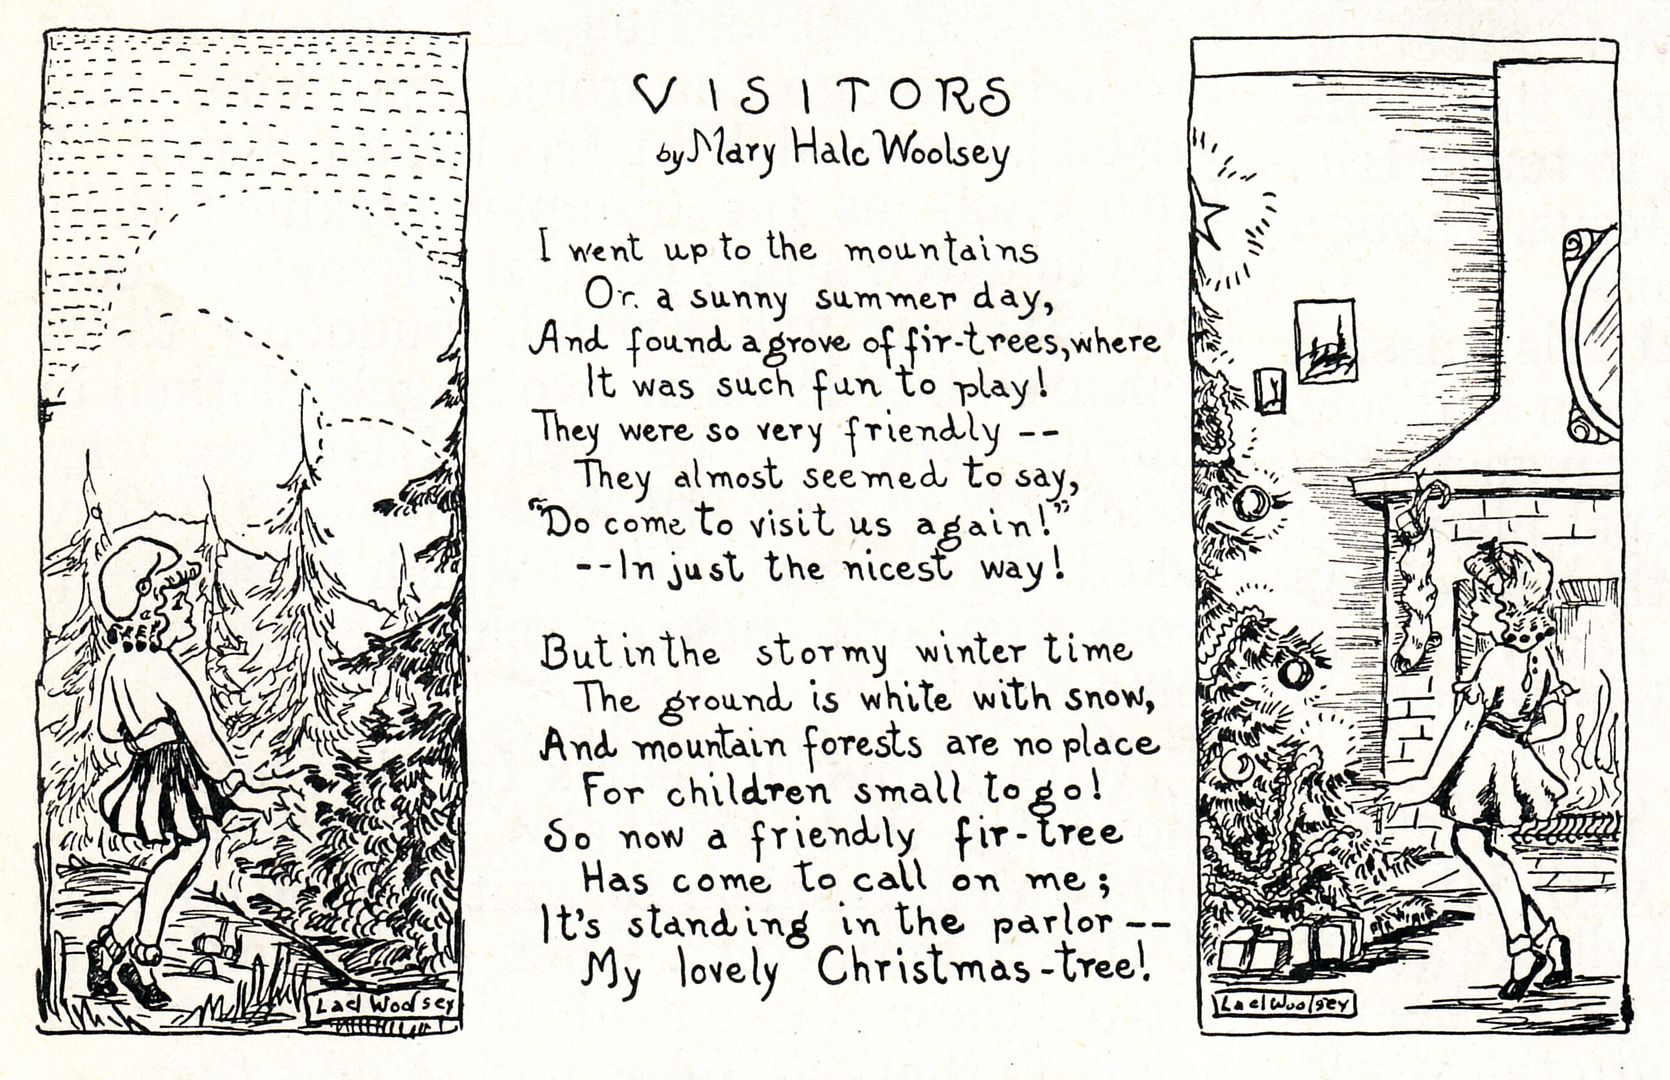 VISITORS
by Mary Hale Woolsey
I went up to the mountains
On a sunny summer day,
And found a grove of fir-trees, where
It was such fun to play!
They were so very friendly --
They almost seemed to say,
"Do come to visit us again!"
--In just the nicest way!
But in the stormy winter time
The ground is white with snow,
And mountain forests are no place
For children small to go!
So now a friendly fir-tree
Has come to call on me;
It's standing in the parlor --
My lovely Christmas-tree!
Lael Woolsey
Lael Woolsey